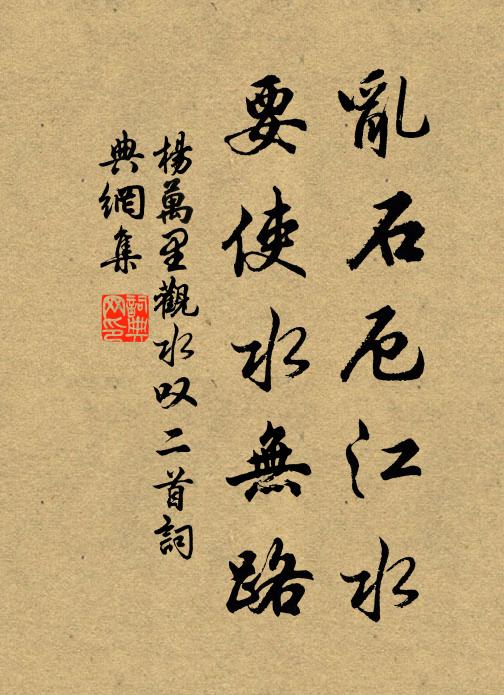 亂石厄江水
要使水無路
楊萬里觀水叹二首詞
典網集
詞典网印